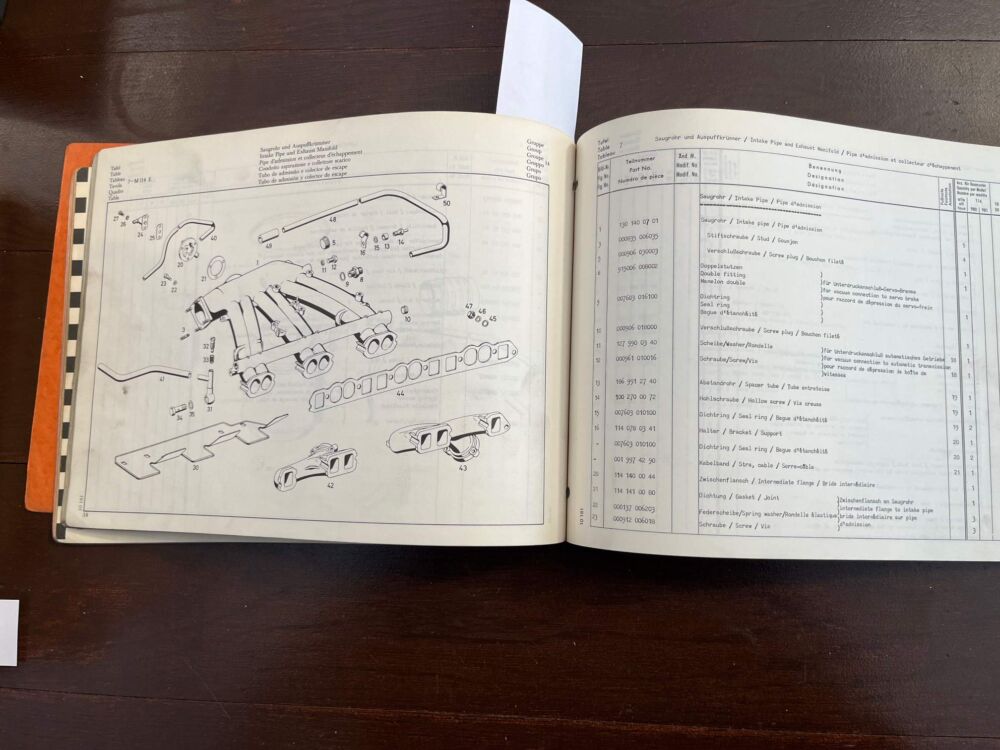 Tafel
Table
Tableau 7-M 114 E.
Tavola
Quadro
Table
Saugrohr und Auspuffkrümmer
Intake Pipe and Exhaust Manifold
Pipe d'admission et collecteur d'échappement
Condotto aspirazione e collettore scarico
Tubo de admisión y colector de escape
Tubo de admissão y colector de escape
Gruppe
Group
Groupe 14
Gruppo
Grupo
Grupo
27
26
24
25
40
20
21
23
22
1
48
49
5
16
15
13
14
11
12
9
8
50
10
47
46
45
3
32
33
41
31
34
35
44
30
42
43
10 181
Tafel
Table 7
Tableau
Saugrohr und Auspuffkrümmer / Intake Pipe and Exhaust Manifold / Pipe d'admission et collecteur d'échappement
Bild-Nr.
Fig. No.
Fig. No.
Teilnummer
Part No.
Numéro de pièce
Änd. N.
Modif. No.
Modif. No.
Benennung
Designation
Désignation
114
Saugrohr / Intake Pipe / Pipe d'admission
1 130 140 07 01 Saugrohr / Intake pipe / Pipe d'admission 1
3 000835 006035 Stiftschraube / Stud / Goujon 4
000906 030003 Verschlußschraube / Screw plug / Bouchon fileté 1
915006 008002 Doppelstutzen
Double fitting
Mamelon double
für Unterdruckanschluß-Servo-Bremse
for vacuum connection to servo brake
pour raccord de dépression du servo-frein
007603 016100 Dichtring
Seal ring
Bague d'étanchéité
000906 018000 Verschlußschraube / Screw plug / Bouchon fileté
11 127 990 03 40 Scheibe/Washer/Rondelle
12 000961 010016 Schraube/Screw/Vis
für Unterdruckanschluß automatisches Getriebe
for vacuum connection to automatic transmission
pour raccord de dépression de boîte de
vitesses
13 186 991 27 40 Abstandrohr / Spacer tube / Tube entretoise
14 100 270 00 72 Hohlschraube / Hollow screw / Vis creuse 19 1
15 007603 010100 Dichtring / Seal ring / Bague d'étanchéité 19 1
16 114 078 03 41 Halter / Bracket / Support 19 2
- 007603 010100 Dichtring / Seal ring / Bague d'étanchéité 20 1
- 001 997 42 90 Kabelband / Stra, cable / Serre-câble 20 2
20 114 140 00 44 Zwischenflansch / Intermediate flange / Bride intermédiaire 21 1
21 114 141 00 80 Dichtung / Gasket / Joint
22 000137 006203 Federscheibe/Spring washer/Rondelle élastique
23 000912 006018 Schraube / Screw / Vis
Zwischenflansch an Saugrohr
intermediate flange to intake pipe
bride intermédiaire sur pipe
d'admission
10 181